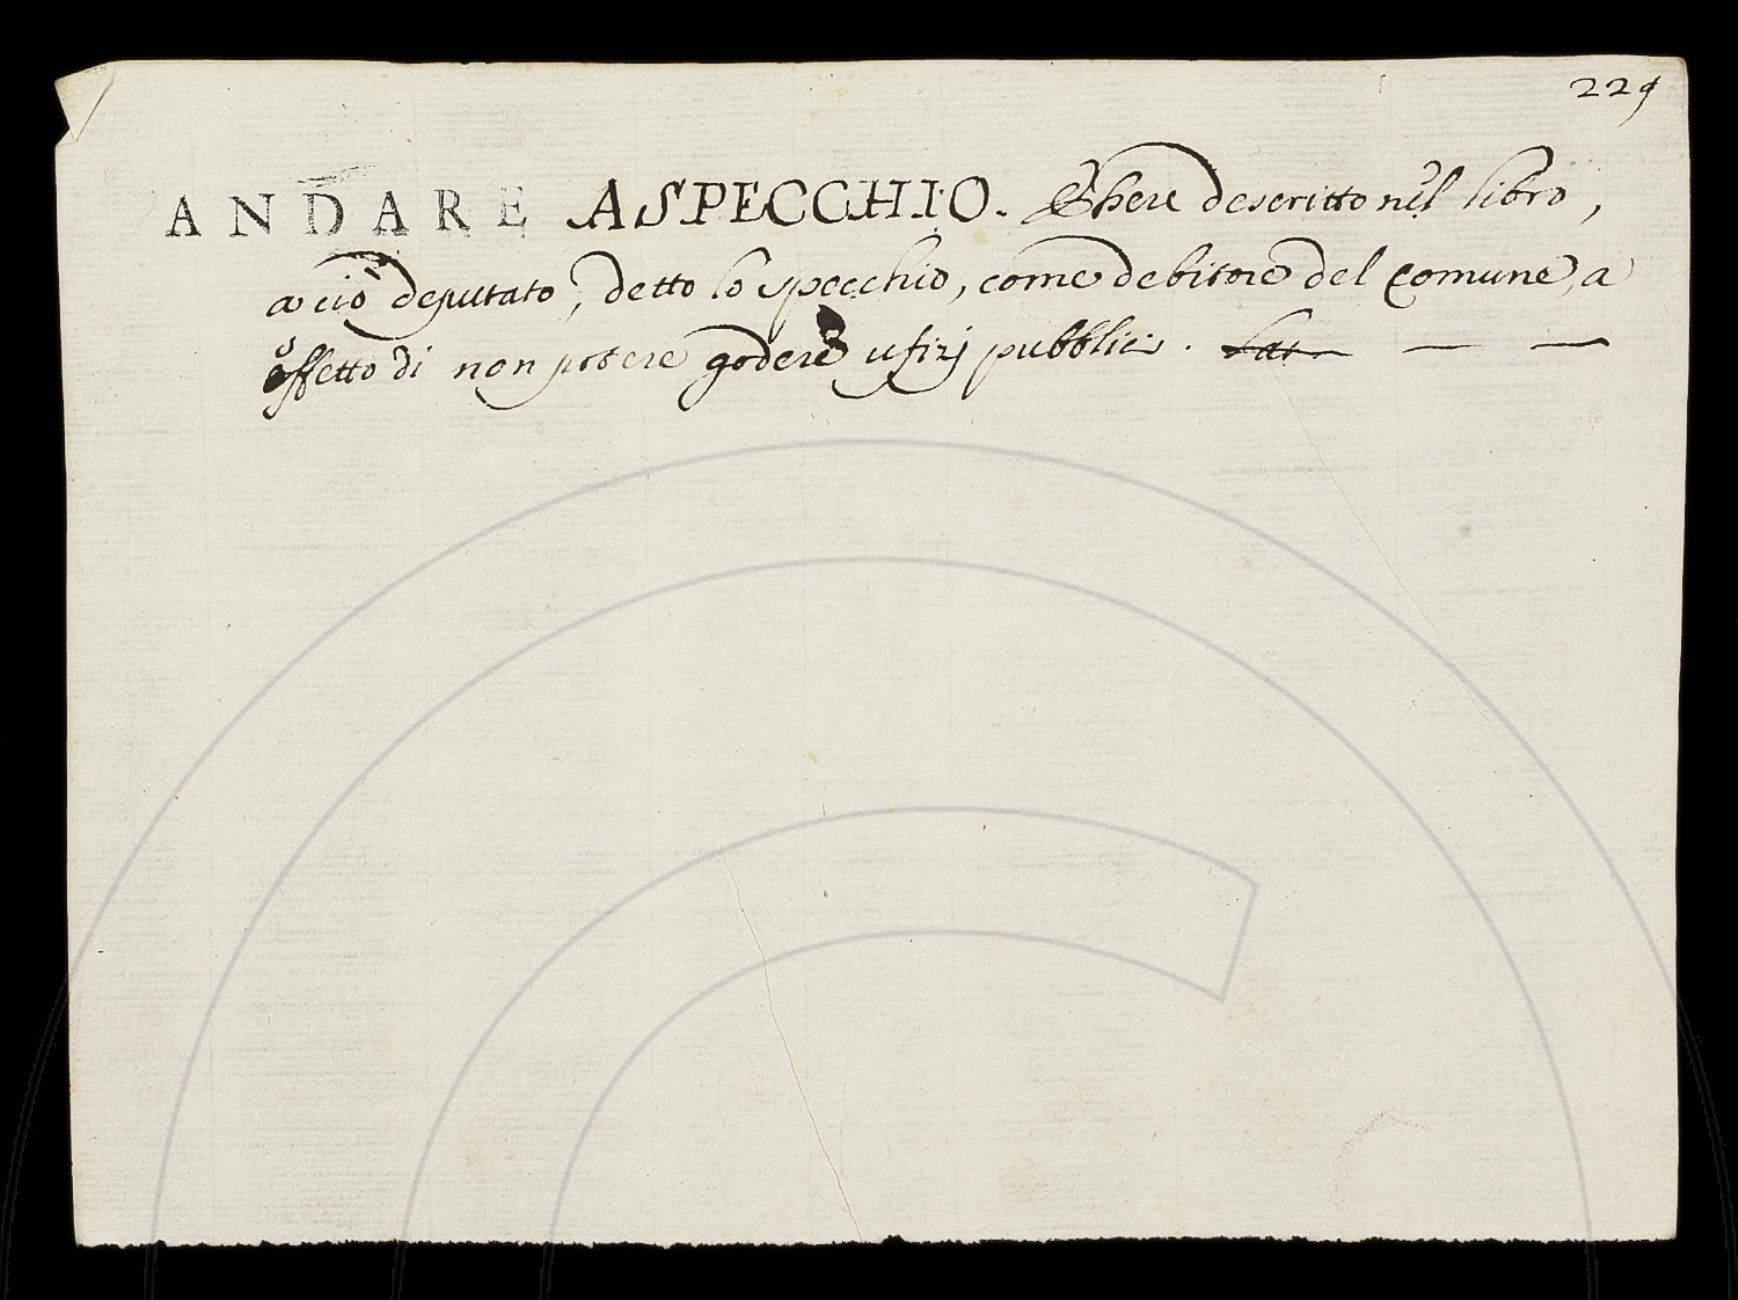 229
ANDARE A SPECCHIO. Eßere descritto nel libro,
a ciò deputato, detto lo specchio, come debitore del Comune, a
effetto di non potere godere ufizj pubblici.